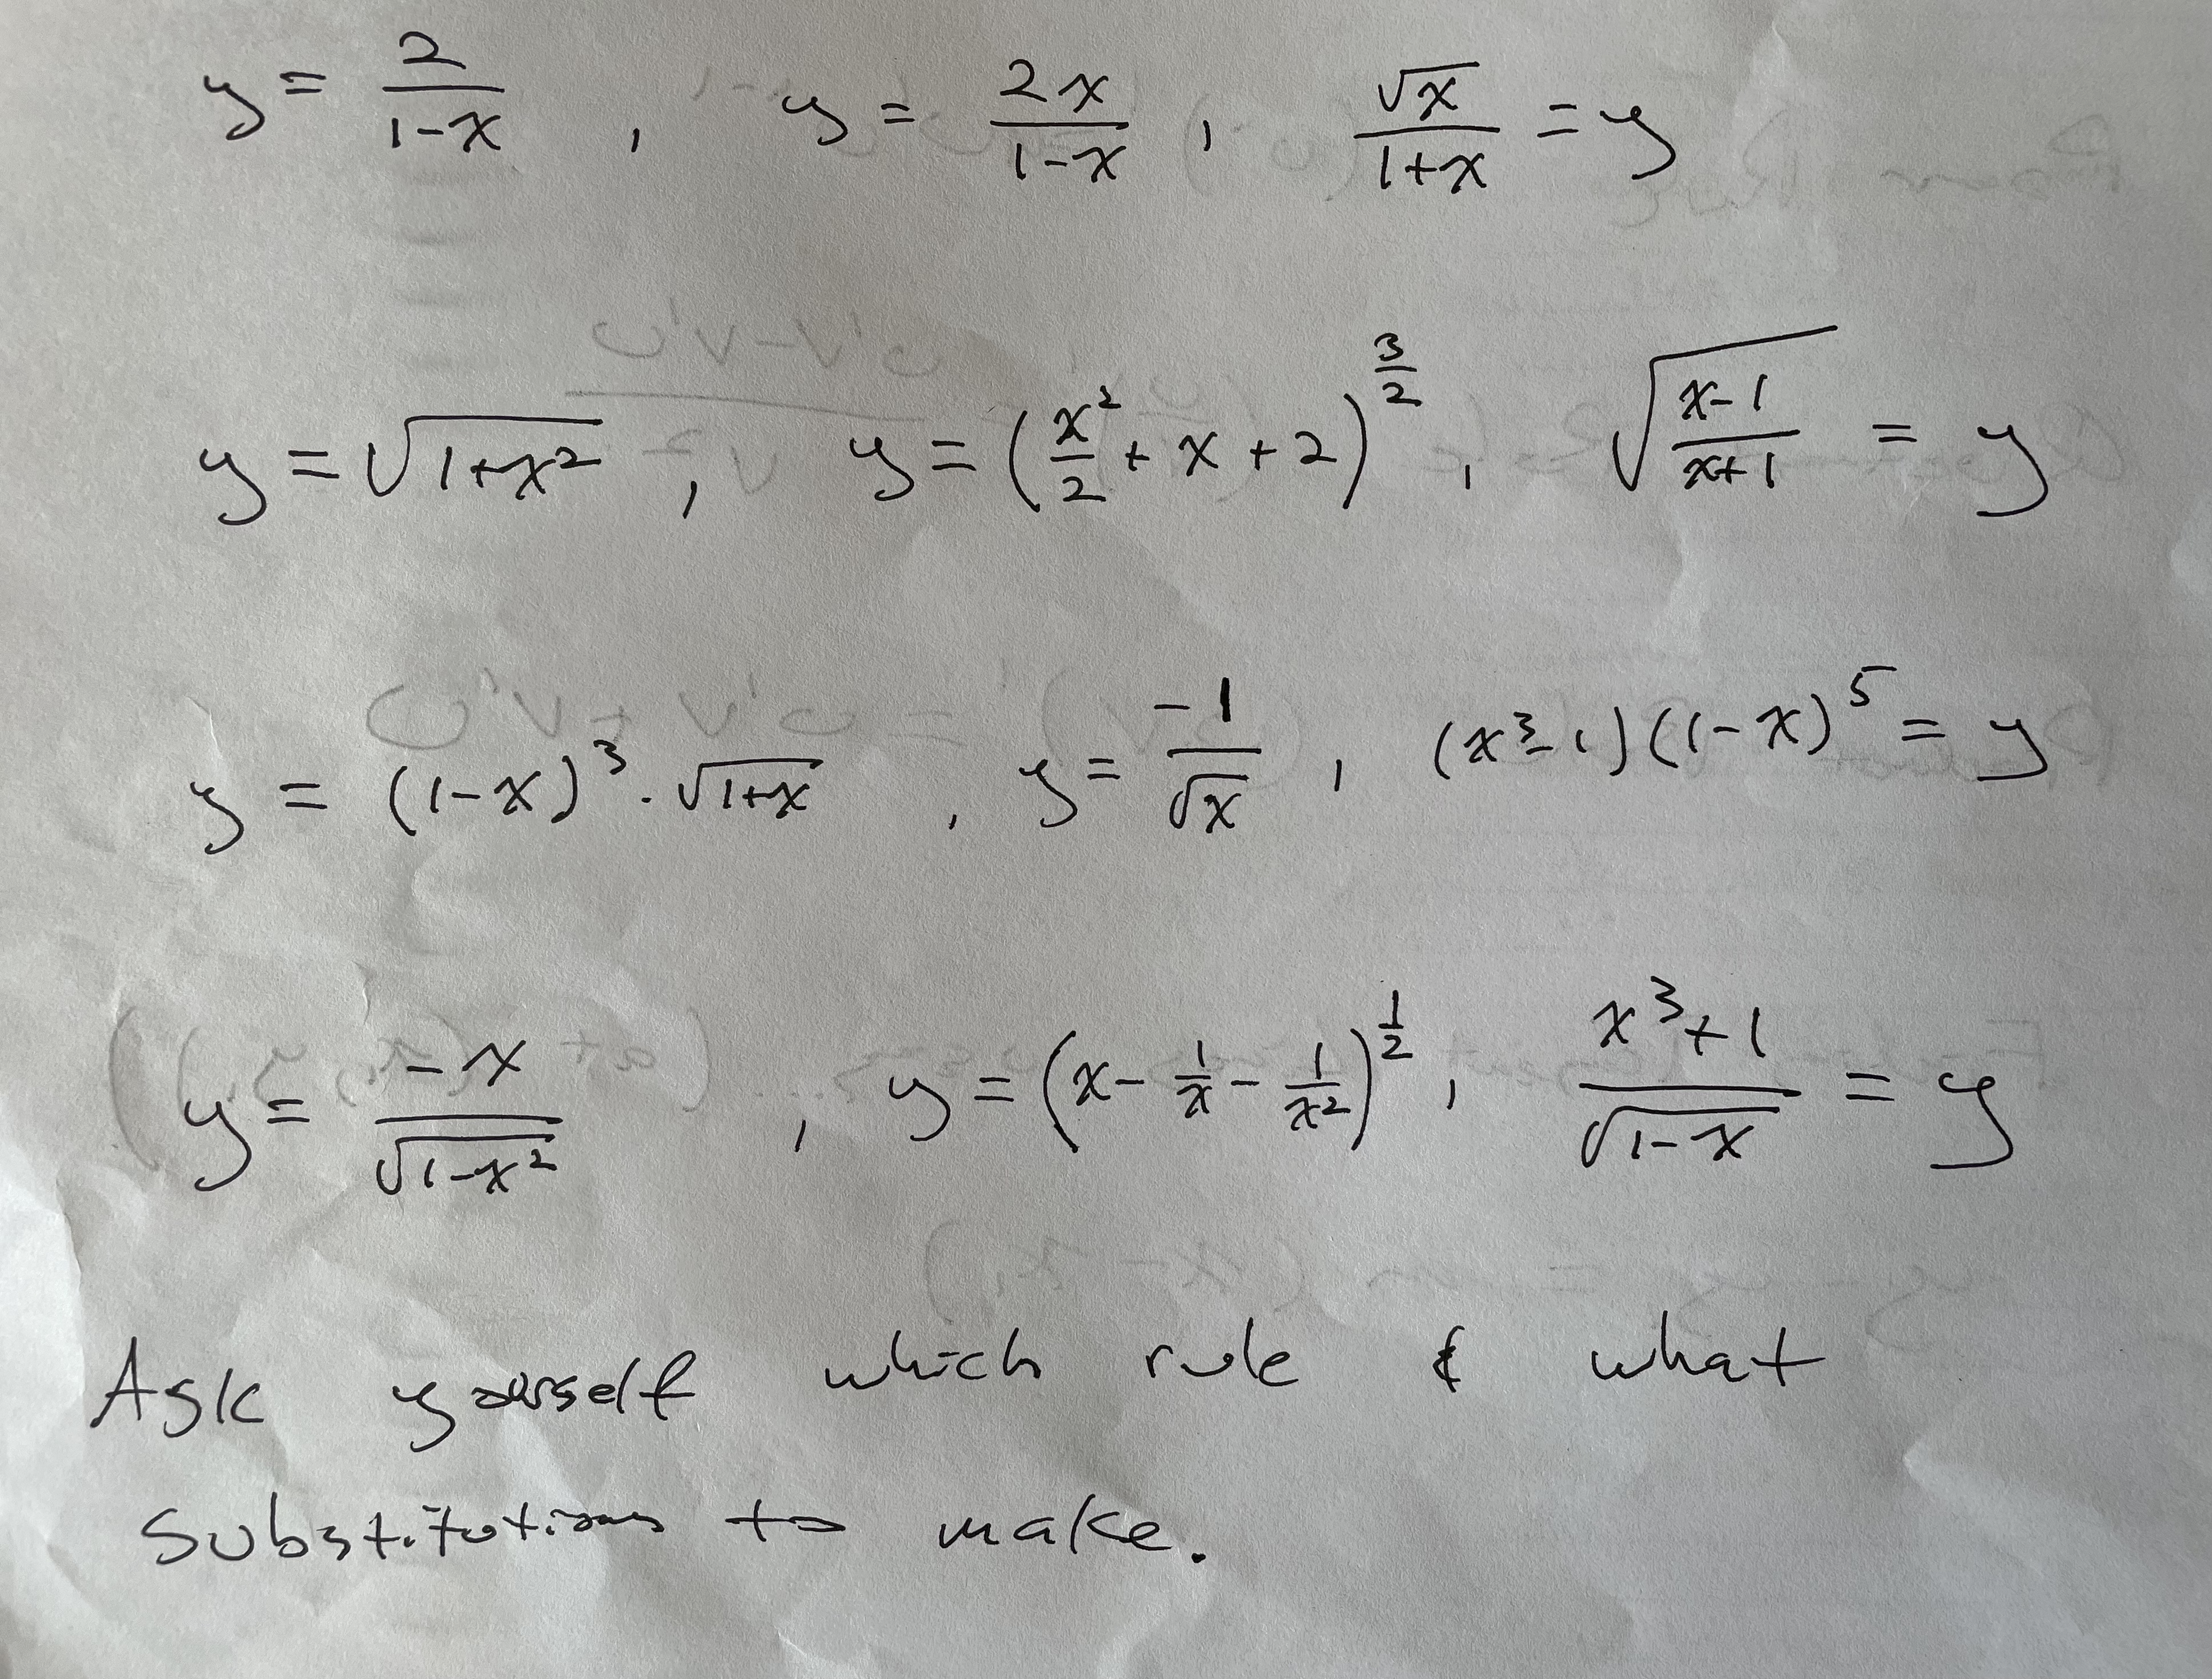 y = 2/(1-x) , y = 2x/(1-x) , √x/(1+x) = y
y = √(1+x²) , y = (x²/2 + x + 2)^(3/2) , √((x-1)/(x+1)) = y
y = (1-x)³ · √(1+x) , y = -1/√x , (x³-1)(1-x)⁵ = y
y = -x/√(1-x²) , y = (x - 1/x - 1/x²)^(1/2) , (x³+1)/√(1-x) = y
Ask yourself which rule & what
substitutions to make.